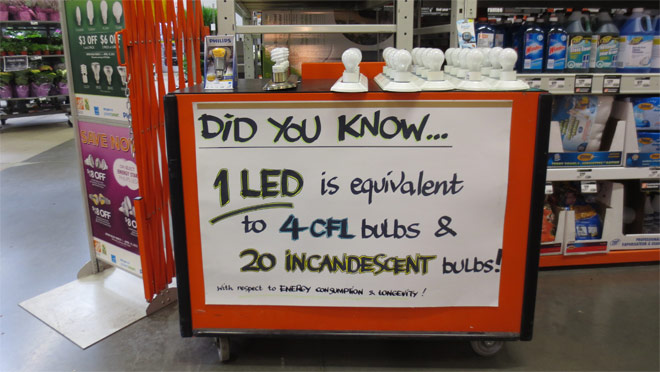 $3 OFF $6 OFF
PHILIPS
DID YOU KNOW...
1 LED is equivalent
to 4 CFL bulbs &
20 INCANDESCENT bulbs!
with respect to ENERGY CONSUMPTION & LONGEVITY!
SAVE NOW
OFF
OFF
Windex